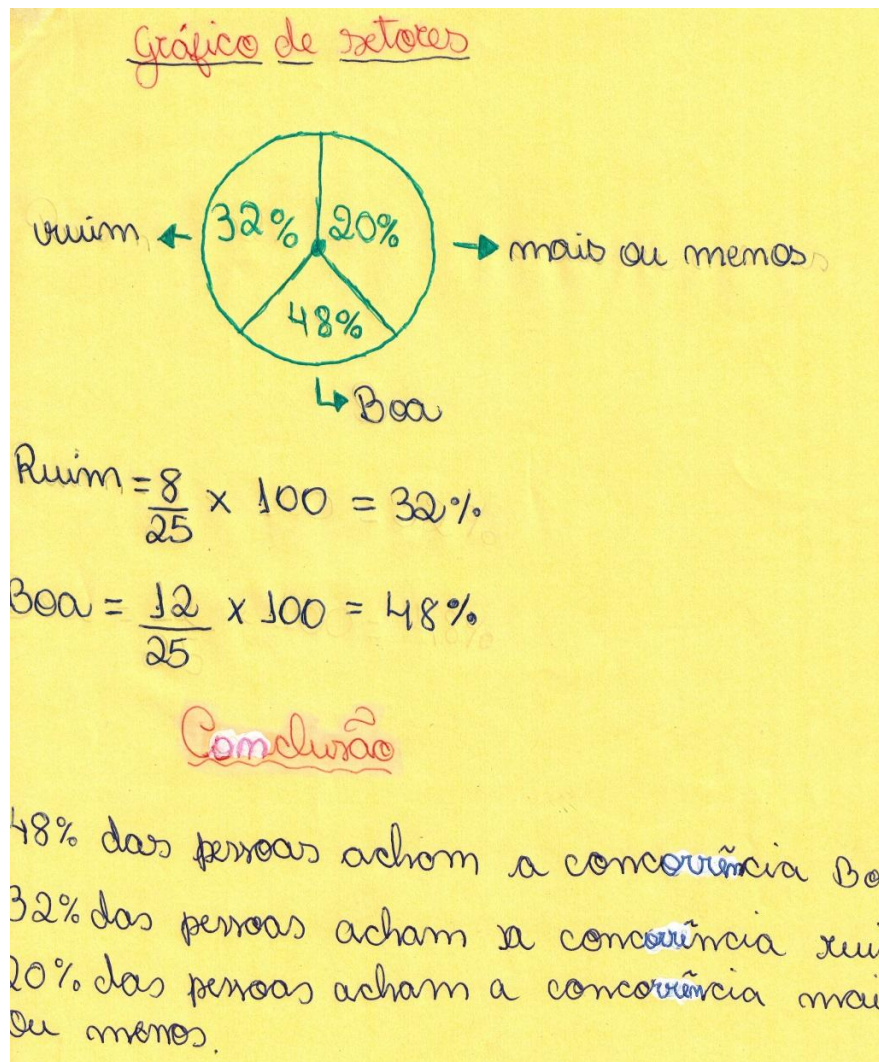 Gráfico de setores
32% 20%
ruim
mais ou menos
48%
Boa
Ruim = 8/25 x 100 = 32%
Boa = 12/25 x 100 = 48%
Conclusão
48% das pessoas achom a concorrência Bo
32% das pessoas acham a concorrência rui
20% das pessoas acham a concorrência mai
ou menos.